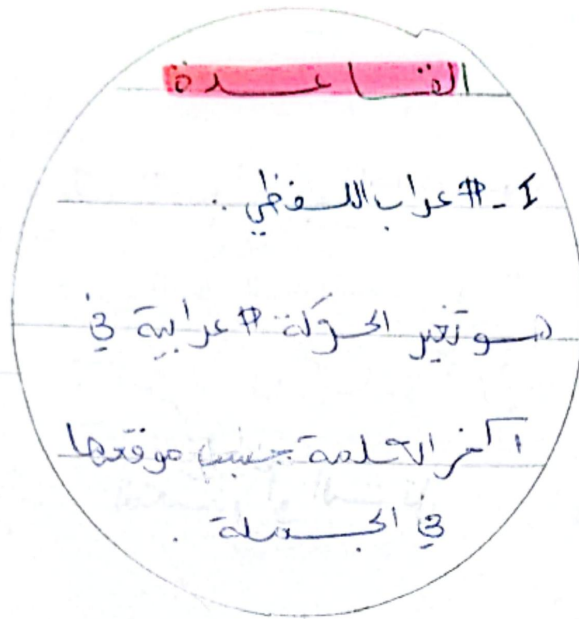 القاعدة
I - الإعراب اللفظي .
هو تغير الحركة الإعرابية في
آخر الكلمة حسب موقعها
في الجملة .